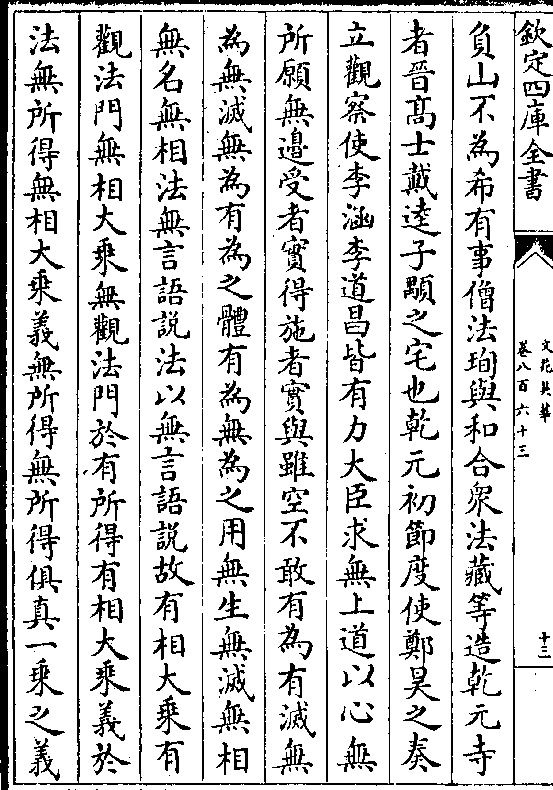 欽定四庫全書
文苑英華
卷八百六十三
十三
負山不為希有事僧法珣與和合衆法藏等造乾元寺
者晉髙士戴逵子顒之宅也乾元初節度使鄭炅之奏
立觀察使李涵李道昌皆有力大臣求無上道以心無
所願無邉受者實得施者實與雖空不敢有為有滅無
為無滅無為有為之體有為無為之用無生無滅無相
無名無相法無言語說法以無言語說故有相大乗有
觀法門無相大乗無觀法門於有所得有相大乗義於
法無所得無相大乗義無所得無所得俱真一乗之義